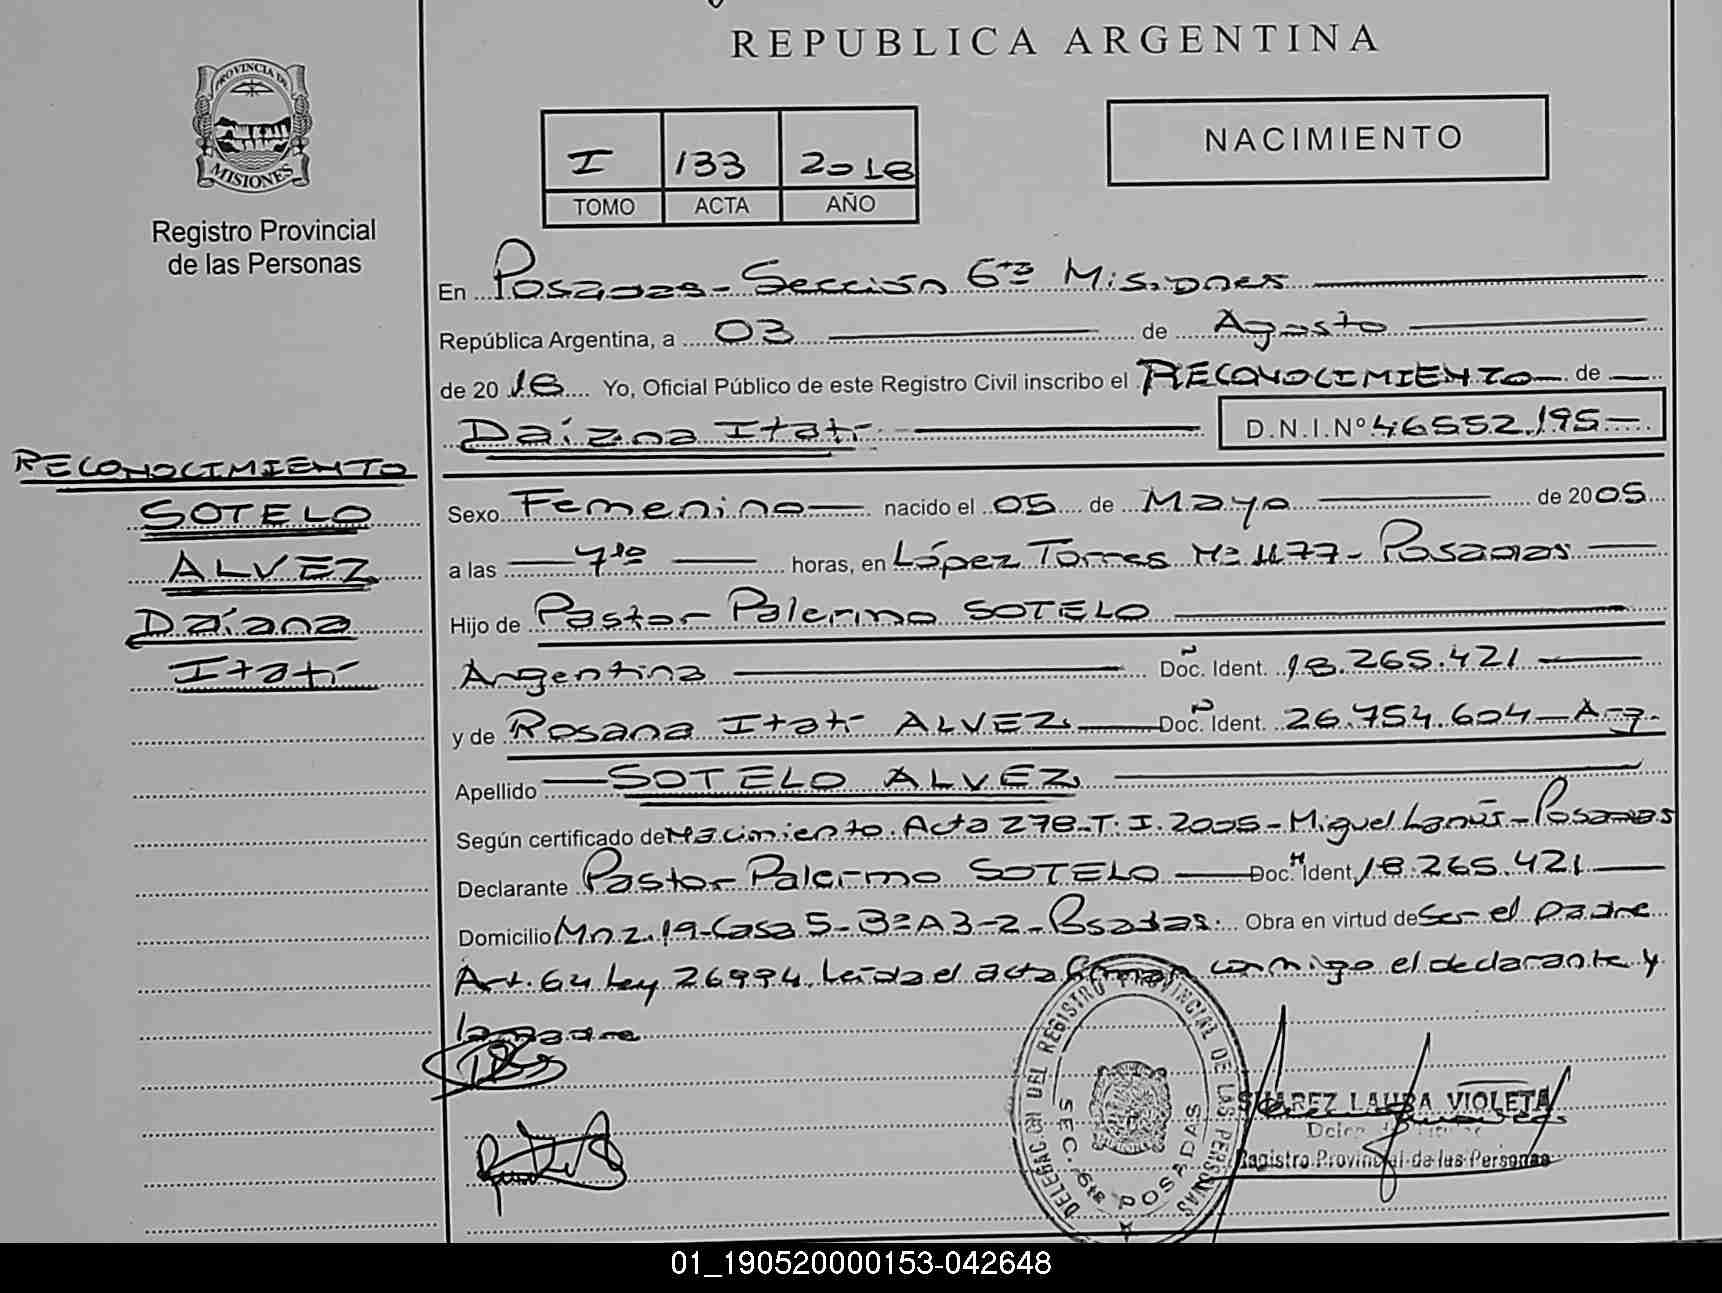 REPUBLICA ARGENTINA
PROVINCIA DE
MISIONES
Registro Provincial
de las Personas
I 133 2018
TOMO ACTA AÑO
NACIMIENTO
En Posadas - Sección 6ta Misiones
República Argentina, a 03 de Agosto
de 2018 Yo, Oficial Público de este Registro Civil inscribo el RECONOCIMIENTO de
Daiana Itatí D.N.I.Nº 46552.195
RECONOCIMIENTO
SOTELO
ALVEZ
Daíana
Itatí
Sexo Femenino nacido el 05 de Mayo de 2005
a las 7 10 horas, en López Torres Nº 1177 - Posadas
Hijo de Pastor Palermo SOTELO
Argentina Doc. Ident. 18.265.421
y de Rosana Itatí ALVEZ Doc. Ident. 26.754.604 - Arg.
Apellido SOTELO ALVEZ
Según certificado de Nacimiento. Acta 278-T. I. 2005 - Miguel Lanús - Posadas
Declarante Pastor Palermo SOTELO Doc. Ident. 18.265.421
Domicilio Mnz. 19-Casa 5-Bº A3-2-Posadas. Obra en virtud de Ser el padre
Art. 64 Ley 26994. Leída el acta firman conmigo el declarante y
la madre
DELEGACION DEL REGISTRO PROVINCIAL DE LAS PERSONAS
SEC. 6ta POSADAS
SUAREZ LAURA VIOLETA
Registro Provincial de las Personas
01_190520000153-042648